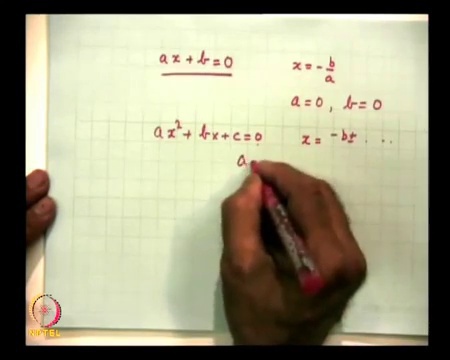 ax + b = 0
x = - b/a
a = 0, b = 0
ax² + bx + c = 0
x = -b ± . . .
a
NPTEL